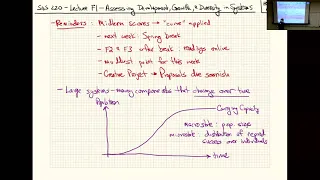 SOS 220 – Lecture F1 – Assessing Development, Growth, & Diversity in Systems
– Reminders: – Midterm scores → "curve" applied
– next week: Spring break
– F2 & F3 after break readings online
– muddiest point for this week
– Creative Project → Proposals due soonish
– Large systems – many components that change over time
Population
Carrying Capacity
macrostate: pop. size
microstate: distribution of reprod. success over individuals
time